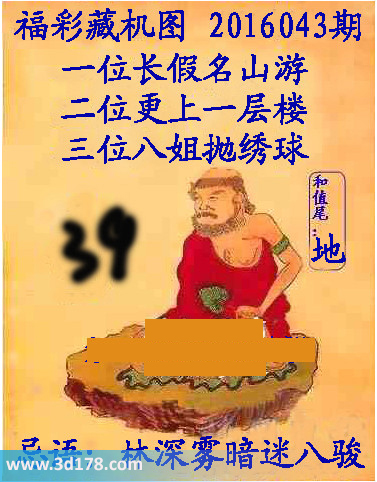 福彩藏机图 2016043期
一位长假名山游
二位更上一层楼
三位八姐抛绣球
和值尾:
地
39
忌语: 林深雾暗迷八骏
www.3d178.com